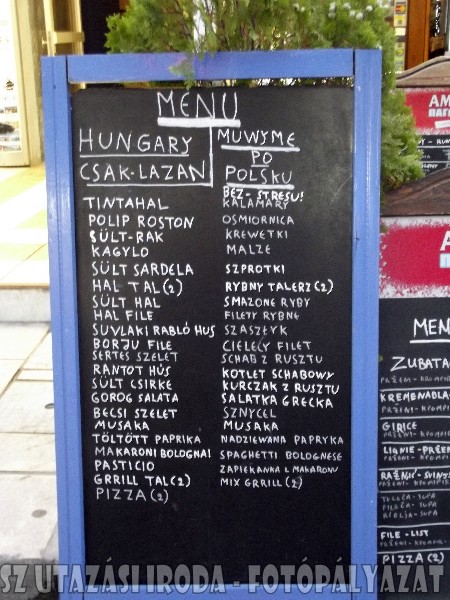 MENU
HUNGARY
CSAK-LAZAN
TINTAHAL
POLIP ROSTON
SÜLT-RAK
KAGYLO
SÜLT SARDELA
HAL TAL(2)
SÜLT HAL
HAL FILE
SUVLAKI RABLÓ HUS
BORJU FILE
SERTES SZELET
RANTOT HÚS
SÜLT CSIRKE
GOROG SALATA
BECSI SZELET
MUSAKA
TÖLTÖTT PAPRIKA
MAKARONI BOLOGNAI
PASTICIO
GRRILL TAL(2)
PIZZA(2)
MUWYME
PO
POLSKU
BEZ-STRESU!
KALAMARY
OSMIORNICA
KREWETKI
MALZE
SZPROTKI
RYBNY TALERZ(2)
SMAZONE RYBY
FILETY RYBNE
SZASZŁYK
CIELECY FILET
SCHAB Z RUSZTU
KOTLET SCHABOWY
KURCZAK Z RUSZTU
SALATKA GRECKA
SZNYCEL
MUSAKA
NADZIEWANA PAPRYKA
SPAGHETTI BOLOGNESE
ZAPIEKANKA Z MAKARONU
MIX GRRILL(2)
AM
ΠΑΓ
AM
MEN
ZUBATA
KREMENADLA
GIRICE
LIGNIE-PAŽEN
RAŽNIĆ-SVINJS
FILE-LIST
PIZZA(2)
SZ UTAZÁSI IRODA - FOTÓPÁLYÁZAT